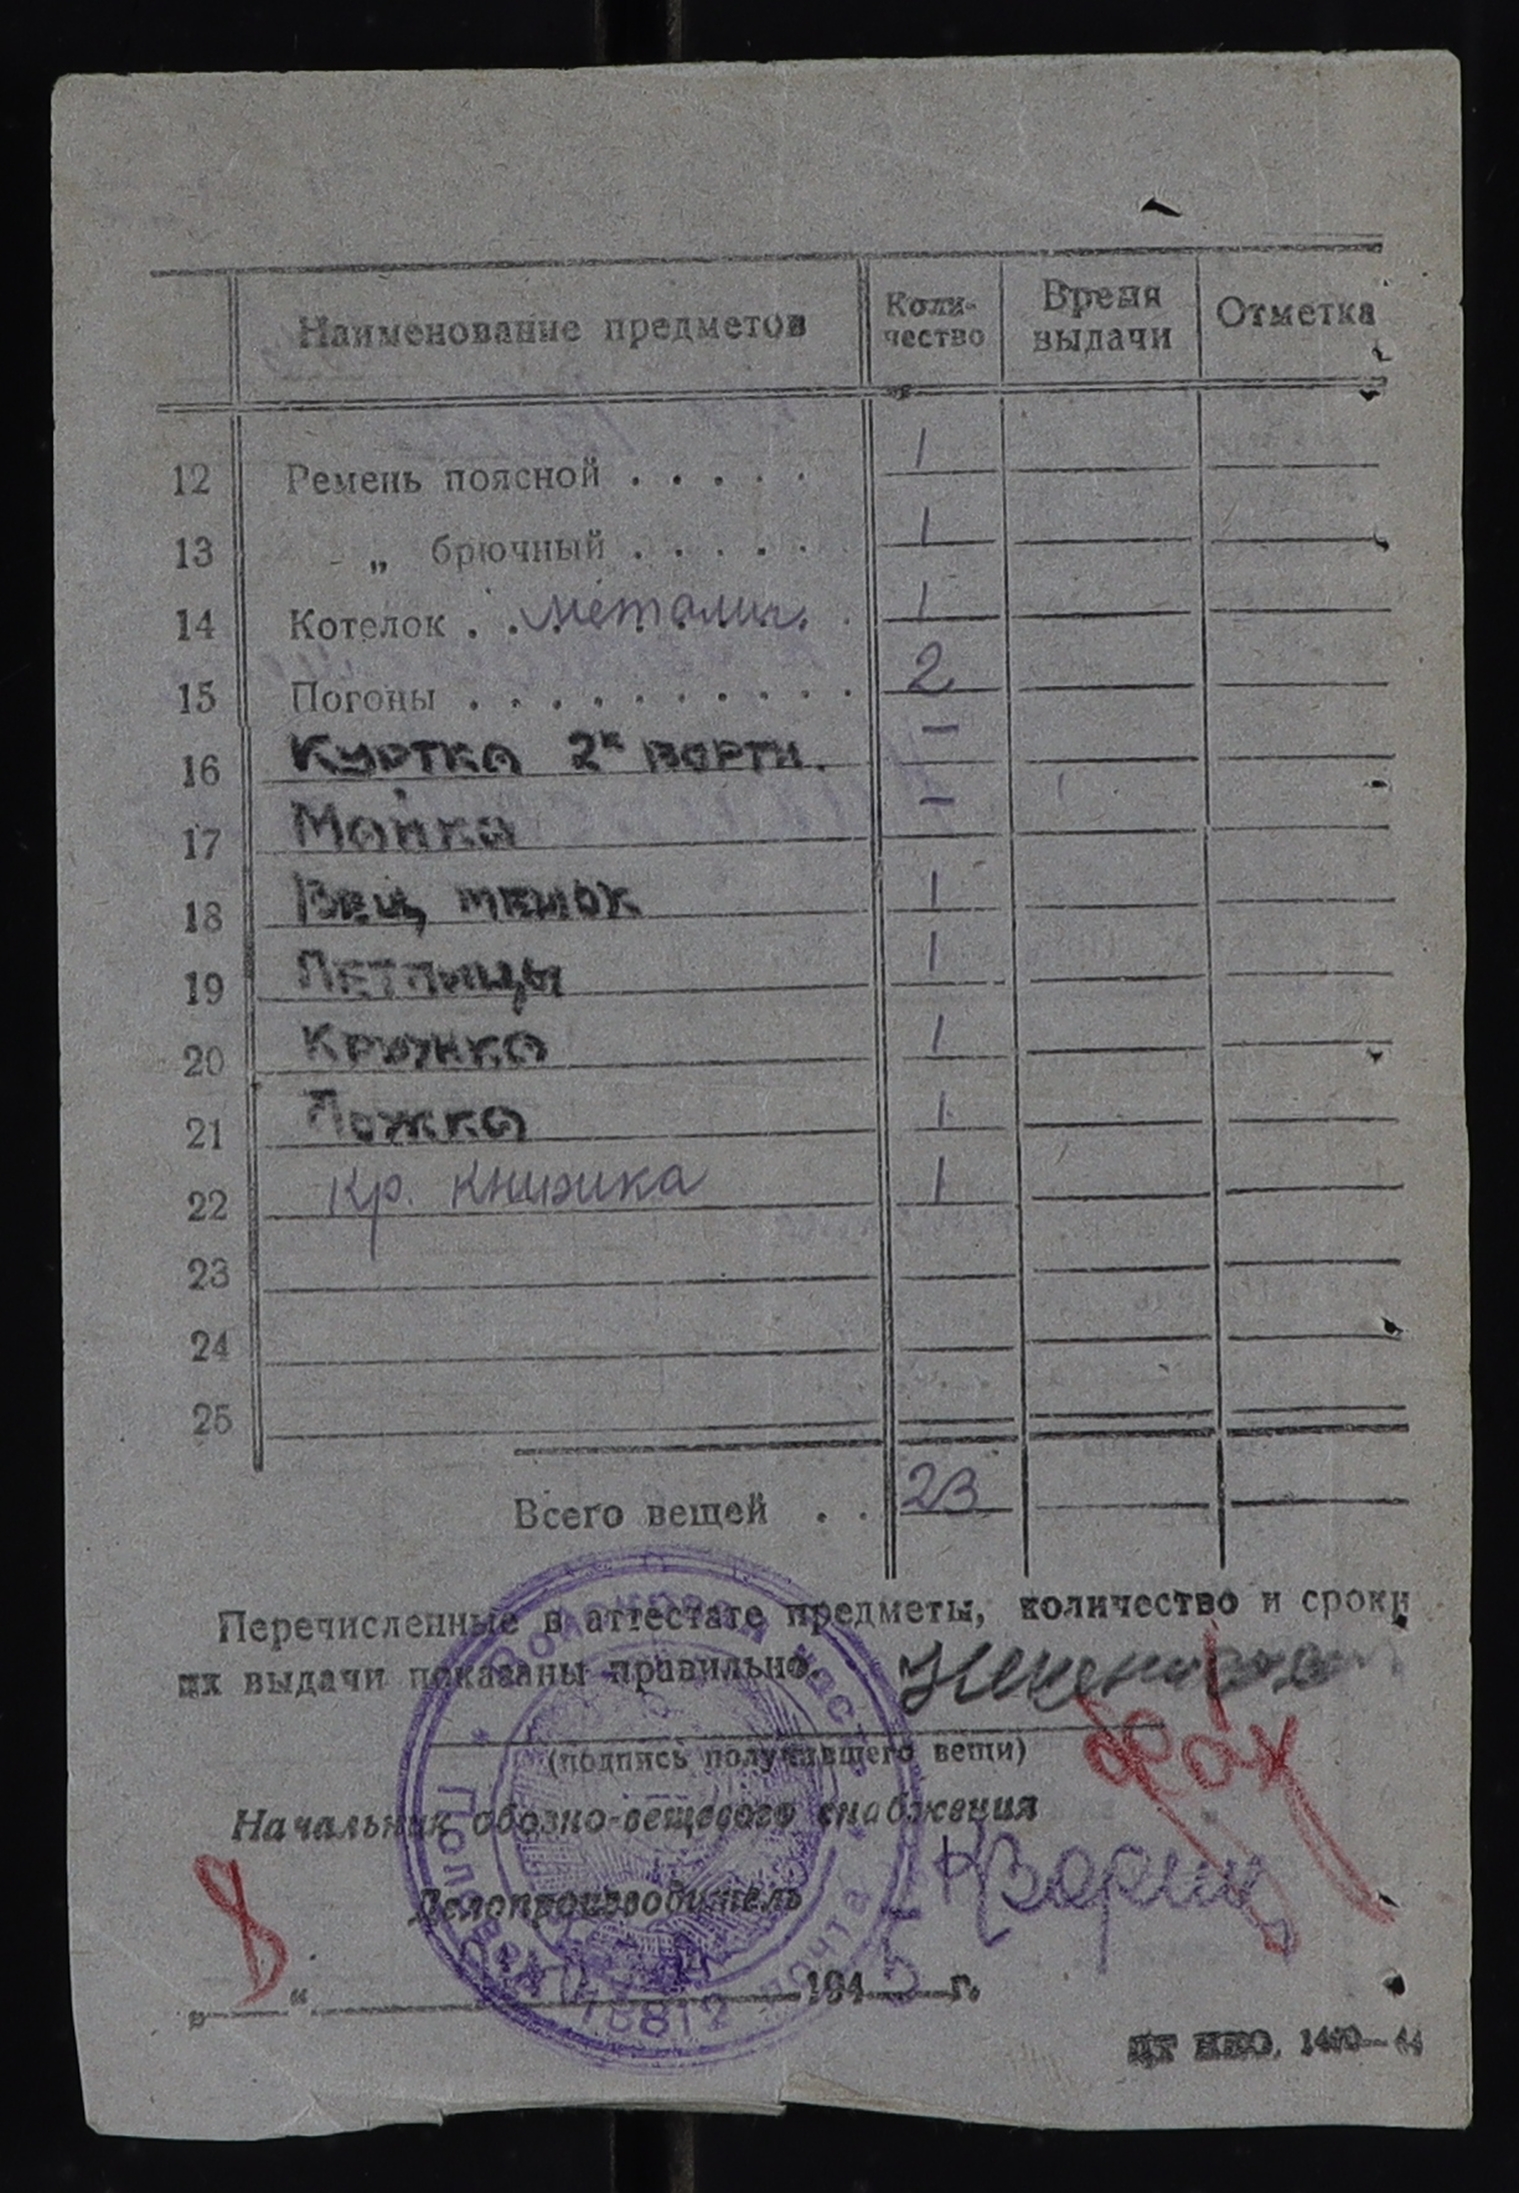 Наименование предметов Коли-чество Время выдачи Отметка
12 Ремень поясной . . . . . 1
13 „ брючный . . . . . 1
14 Котелок . . металич. . 1
15 Погоны . . . . . . . . . . 2
16 Куртка 2х –
17 Майка –
18 Вещ мешок 1
19 Петлицы 1
20 Кружка 1
21 Ложка 1
22 кр. книжка 1
23
24
25
Всего вещей . . 23
Перечисленные в аттестате предметы, количество и сроки
их выдачи показаны правильно.
(подпись получившего вещи)
Начальник обозно-вещевого снабжения
Делопроизводитель
„ “ 1945 г.
Войсковая часть
Полевая почта
18812
ЦТ НКО. 1470—44